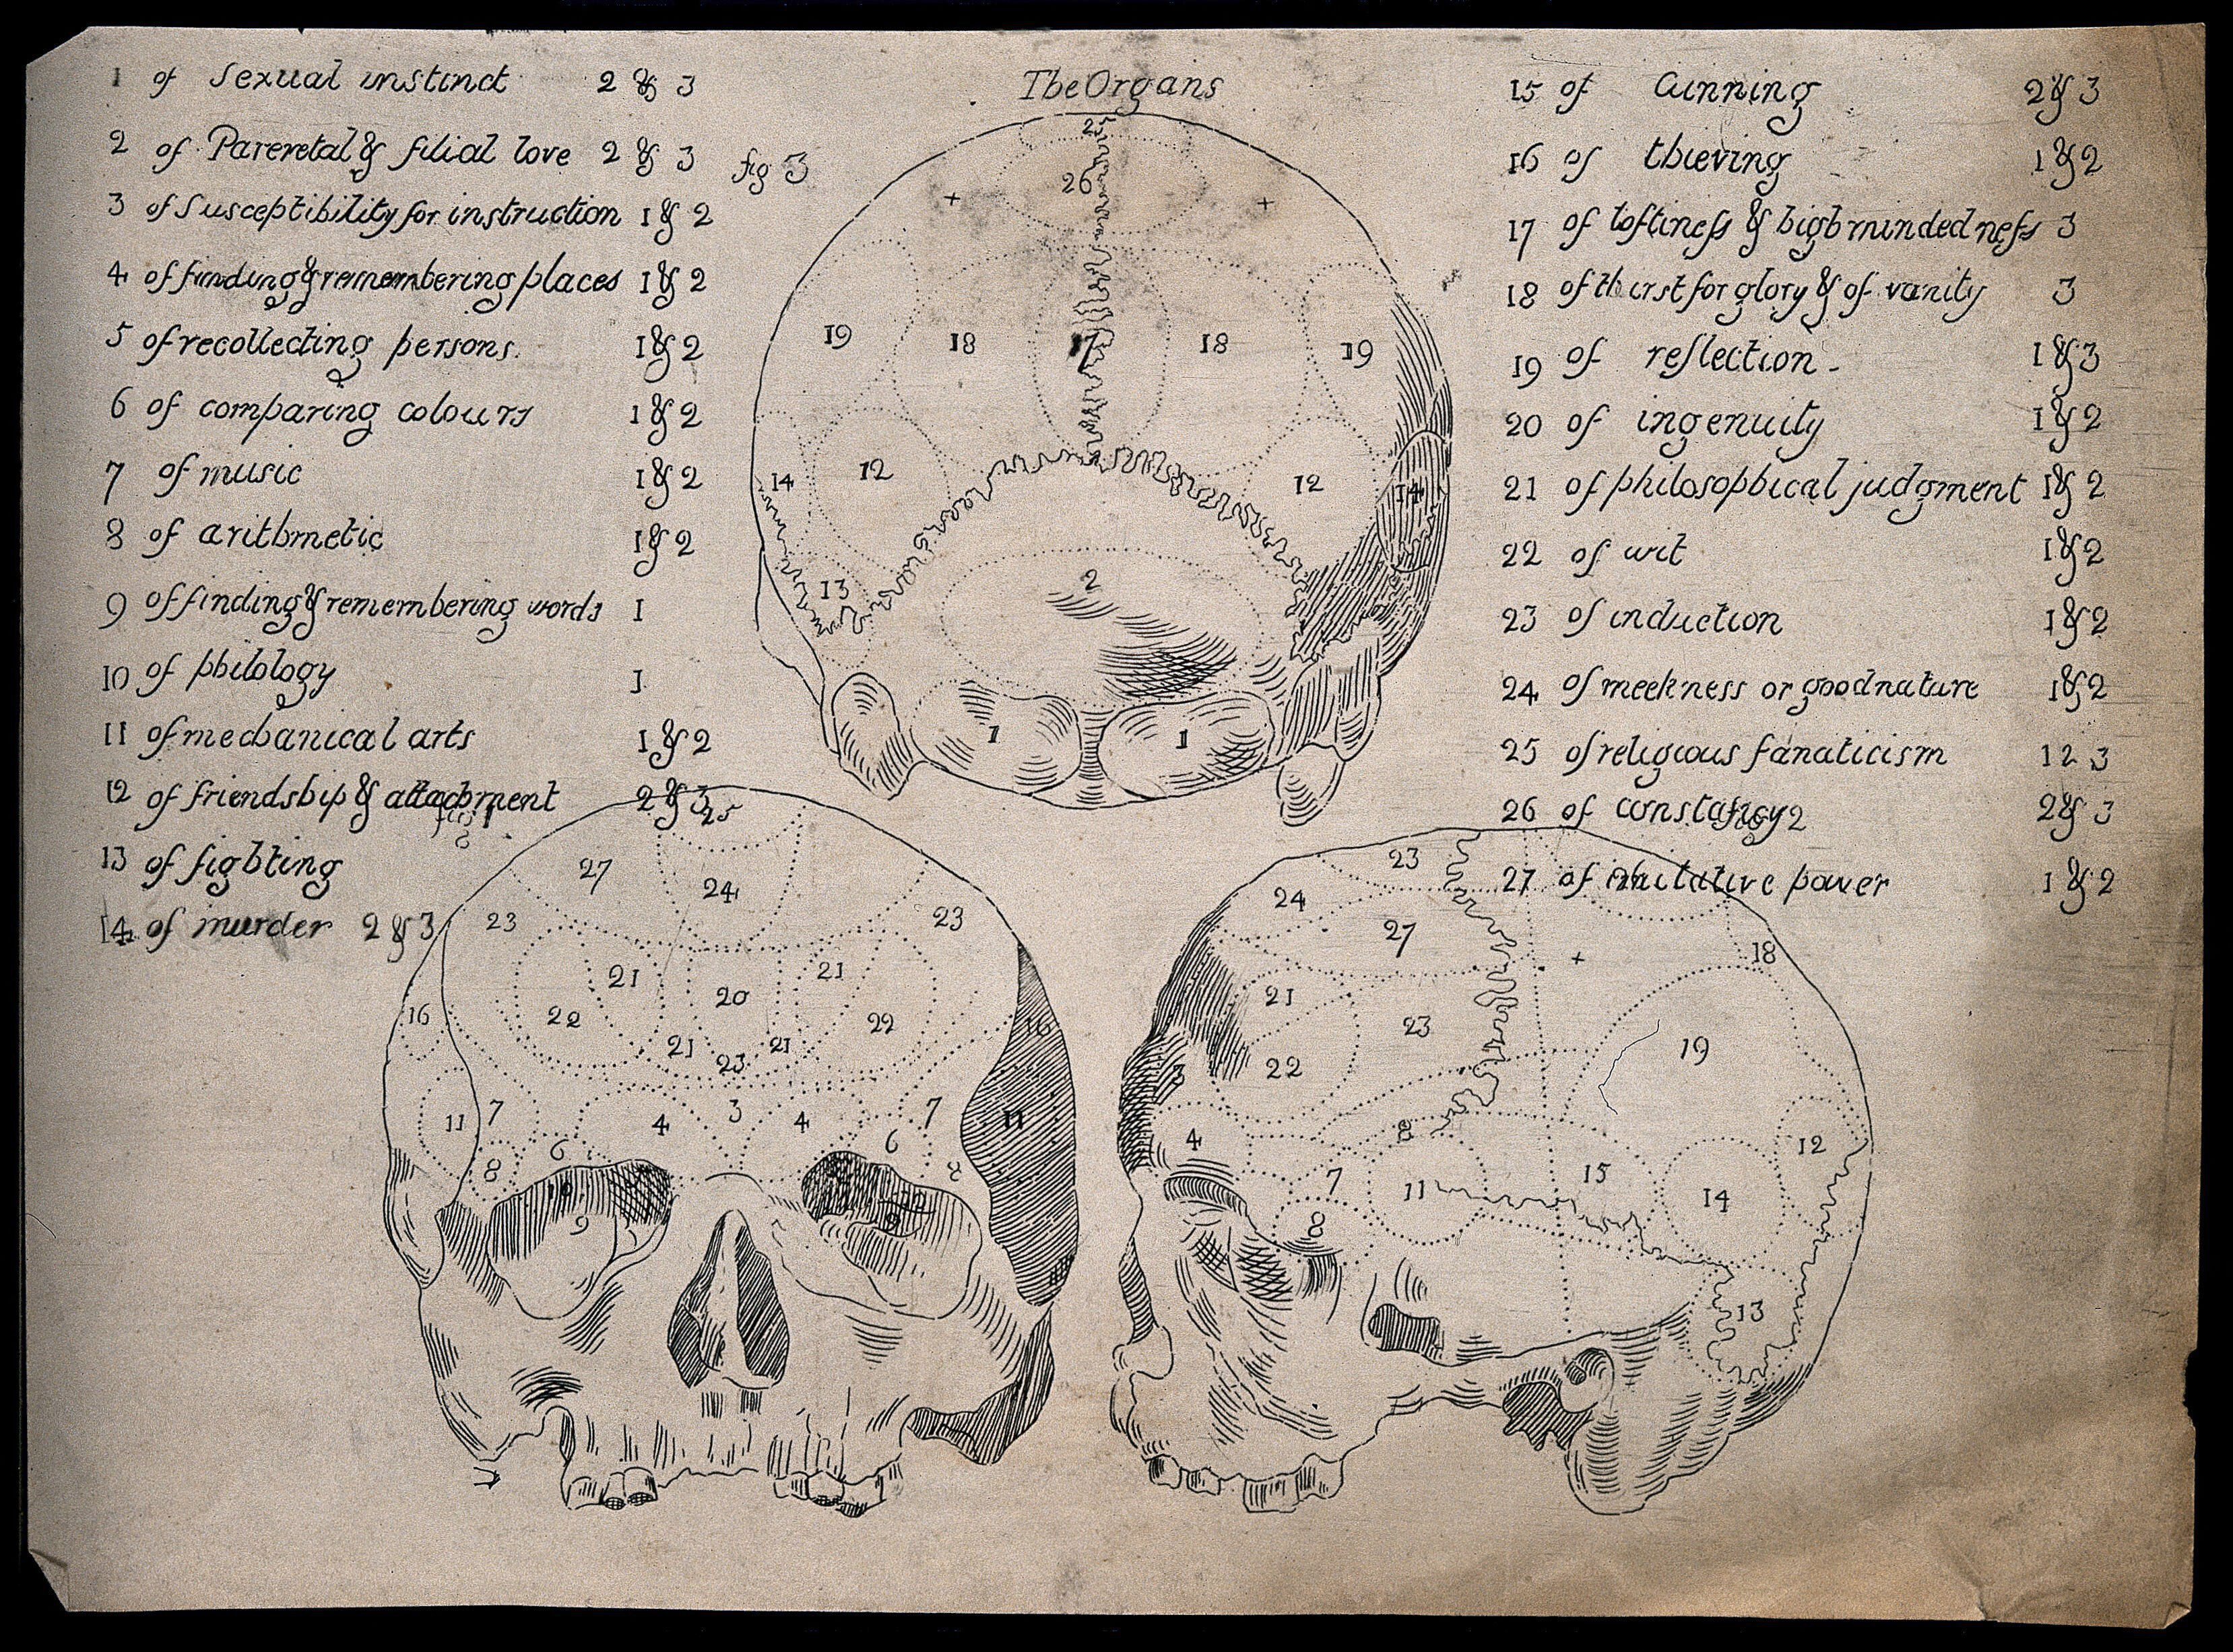 The Organs
1 of Sexual instinct 2 & 3
2 of Parevetal & filial love 2 & 3
3 of Susceptibility for instruction 1 & 2
4 of finding & remembering places 1 & 2
5 of recollecting persons. 1 & 2
6 of comparing colours 1 & 2
7 of music 1 & 2
8 of arithmetic 1 & 2
9 of finding & remembering words 1
10 of philology 1
11 of mechanical arts 1 & 2
12 of friendship & attachment 2 & 3
13 of fighting
14 of murder 2 & 3
15 of Cunning 2 & 3
16 of thieving 1 & 2
17 of loftiness & highmindedness 3
18 of thirst for glory & of vanity 3
19 of reflection - 1 & 3
20 of ingenuity 1 & 2
21 of philosophical judgment 1 & 2
22 of wit 1 & 2
23 of induction 1 & 2
24 of meekness or goodnature 1 & 2
25 of religious fanaticism 1 2 3
26 of constancy 2 & 3
27 of imitative power 1 & 2
fig 3
25
26
19 18 17 18 19
14 12 12 14
13 2
1 1
fig 1
25
27 24
23 23
21 20 21
16 22 22 16
21 23 21
11 7 4 3 4 7 11
8 6 6 8
10 10
9 9
fig 2
23
24 26
27 18
21
22 23 19
3
4 8 12
7 11 15 14
8
13